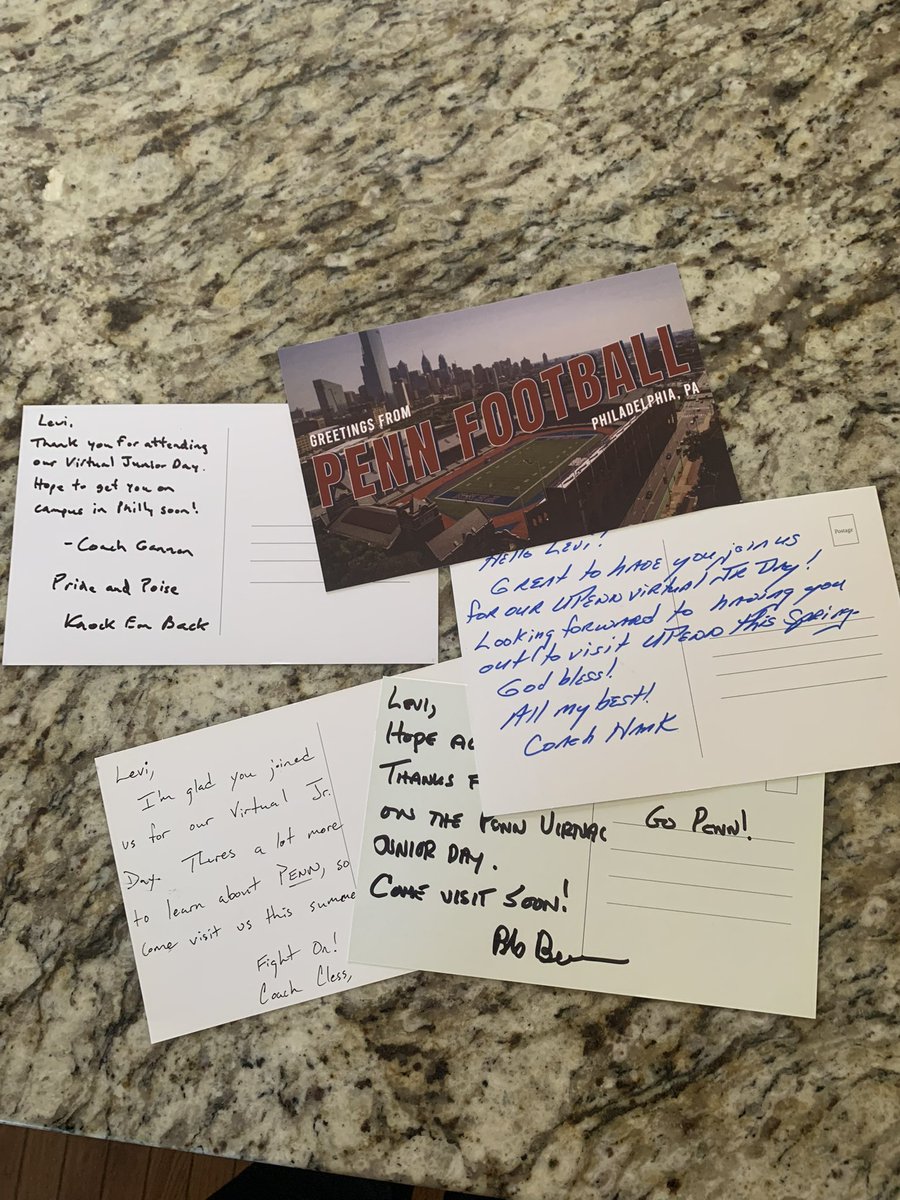 GREETINGS FROM
PENN FOOTBALL
PHILADELPHIA, PA
Levi,
Thank you for attending
our Virtual Junior Day.
Hope to get you on
campus in Philly soon!
-Coach Gannon
Pride and Poise
Knock Em Back
Postage
Hello Levi!
Great to have you join us
for our UPenn virtual JR Day!
Looking forward to having you
out to visit UPenn this Spring
God bless!
All my best!
Coach
Levi,
I'm glad you joined
us for our Virtual Jr.
Day. Theres a lot more
to learn about PENN, so
come visit us this summe
Fight On!
Coach Cless,
Levi,
Hope
Thanks
on the Penn Virtual
Junior Day.
Come visit soon!
Bob
Go Penn!